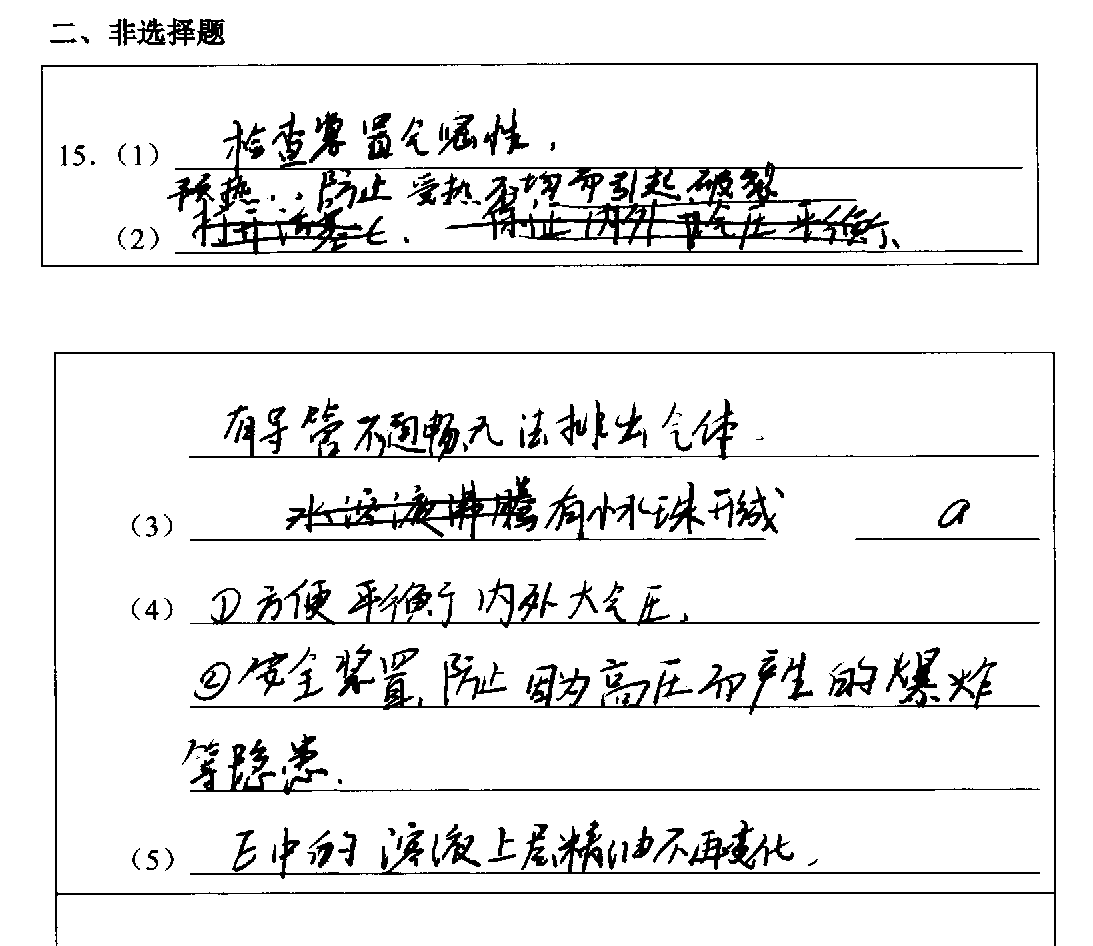 二、非选择题
15.（1） 检查装置气密性，
预热，防止受热不均而引起破裂
（2） 打开活塞C，保证内外大气压平衡、
有导管不通畅无法排出气体.
（3） 水溶液沸腾有小水珠形成 a
（4）①方便平衡内外大气压、
②安全装置,防止因为高压而产生的爆炸
等隐患.
（5） E中的溶液上层精油不再变化.